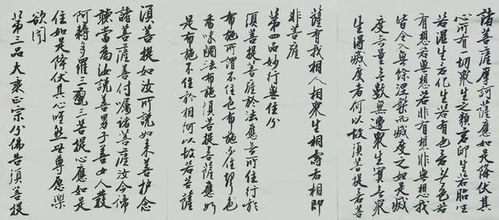 諸菩薩摩訶薩應如是降伏其
心所有一切眾生之類若卵生若胎生
若濕生若化生若有色若無色若
有想若無想若非有想非無想我
皆令入無餘涅槃而滅度之如是滅
度無量無數無邊眾生實無眾
生得滅度者何以故須菩提若菩
薩有我相人相眾生相壽者相即
非菩薩
第四品妙行無住分
須菩提菩薩於法應無所住行於
布施所謂不住色布施不住聲
香味觸法布施須菩提菩薩應如
是布施不住於相何以故若菩薩
須菩提如汝所說如來善護念
諸菩薩善付囑諸菩薩汝今諦
聽當為汝說善男子善女人發
阿耨多羅三藐三菩提心應如是
住如是降伏其心唯然世尊願樂
欲聞
第三品大乘正宗分佛告須菩提